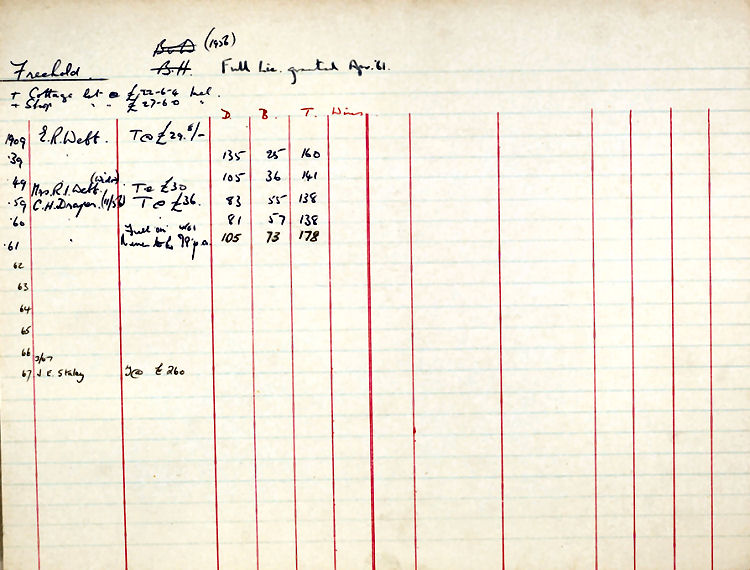 (1956)
Freehold. B.H. Full Lic. granted Apr. '61.
+ Cottage let @ £22-6-4 incl.
+ Shop " " £27-6-0 "
D B. T. Wines
1909 E.R. Webb. T @ £29.
'39 " 135 25 160
'49 (Widow) 105 36 141
Mrs. R.I. Webb. T @ £30
'59 C.H. Draper. (11/56) T @ £36. 83 55 138
'60 81 57 138
'61 " Full on 105 73 178
62
63
64
65
66
3/67
67 J.E. Staley T @ £260